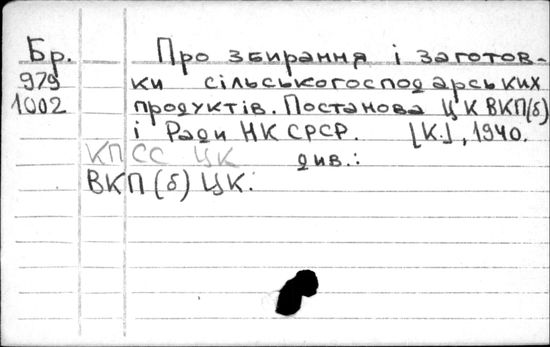 Бр. Про збирання і заготов-
979 ки сільськогосподарських
1002 продуктів. Постанова ЦК ВКП(б)
і Ради НК СРСР. [К.], 1940.
КПСС ЦК див.:
ВКП(б) ЦК.